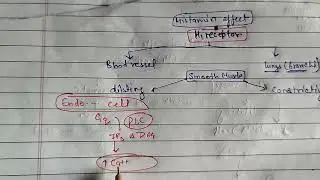 Histamin effect
H1 receptor
Blood vessel
lungs (bronchi)
Smooth Muscle
dilating
Constricting
Endo cell
Gq PLC
IP3 & DAG
↑ Ca++